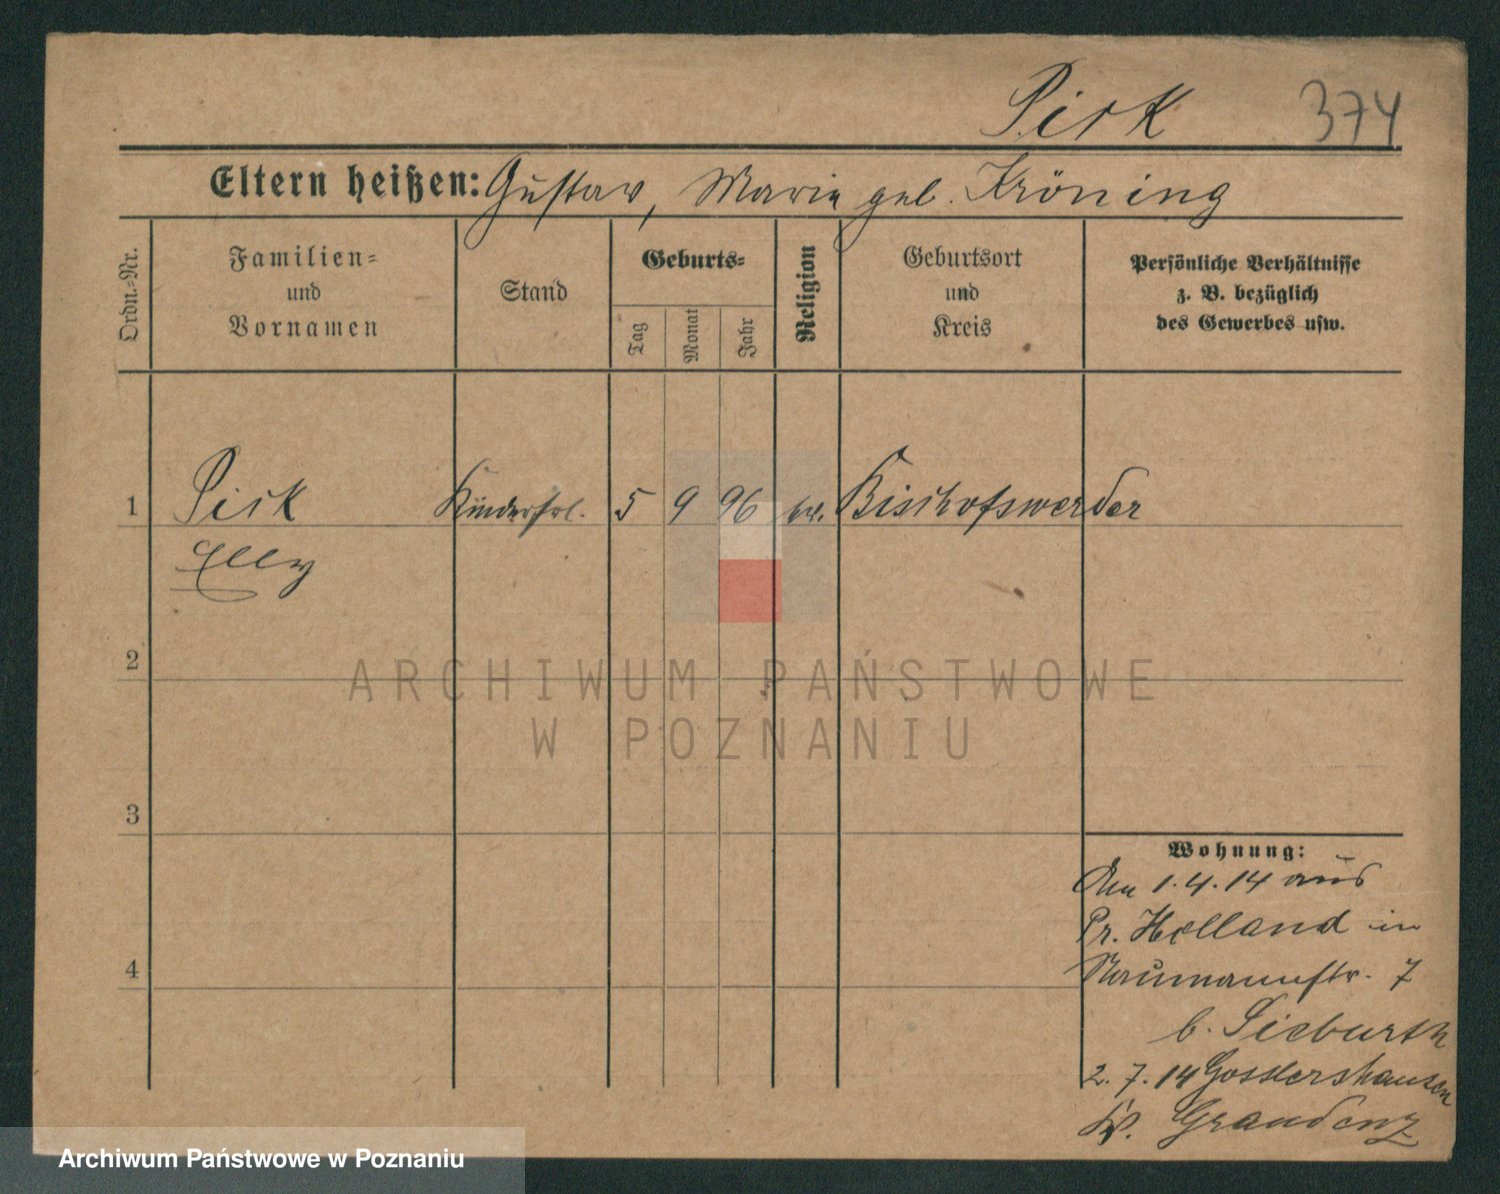 Pisk 374
Eltern heißen: Gustav, Marie geb. Kröning
Ordn.=Nr.
Familien=
und
Vornamen
Stand
Geburts=
Tag
Monat
Jahr
Religion
Geburtsort
und
Kreis
Persönliche Verhältnisse
z. B. bezüglich
des Gewerbes usw.
1 Pisk Kinderfrl. 5 9 96 ev. Bischofswerder
Elly
2
3
4
Wohnung:
Am 1.4.14 aus
Pr. Holland in
Naumannstr. 7
b. Sieburth
2.7.14 Gosslershausen
Kr. Graudenz
ARCHIWUM PAŃSTWOWE
W POZNANIU
Archiwum Państwowe w Poznaniu